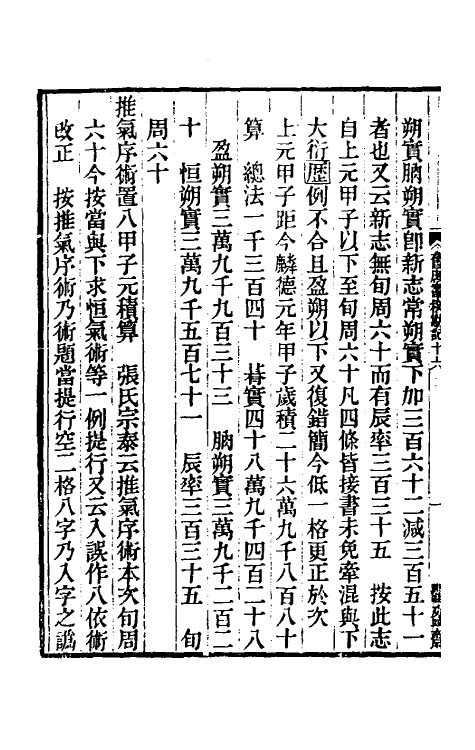 朔實朒朔實卽新志常朔實下加三百六十二減三百五十一
者也又云新志無旬周六十而有辰率三百三十五　按此志
自上元甲子以下至旬周六十凡四條皆接書未免牽混與下
大衍歷例不合且盈朔以下又復錯簡今低一格更正於次
上元甲子距今麟德元年甲子歲積二十六萬九千八百八十
算　總法一千三百四十　朞實四十八萬九千四百二十八
盈朔實三萬九千九百三十三　朒朔實三萬九千二百二
十　恒朔實三萬九千五百七十一　辰率三百三十五　旬
周六十
推氣序術置八甲子元積算　張氏宗泰云推氣序術本次旬周
六十今按當與下求恒氣術等一例提行又云入誤作八依術
改正　按推氣序術乃術題當提行空二格八字乃入字之譌